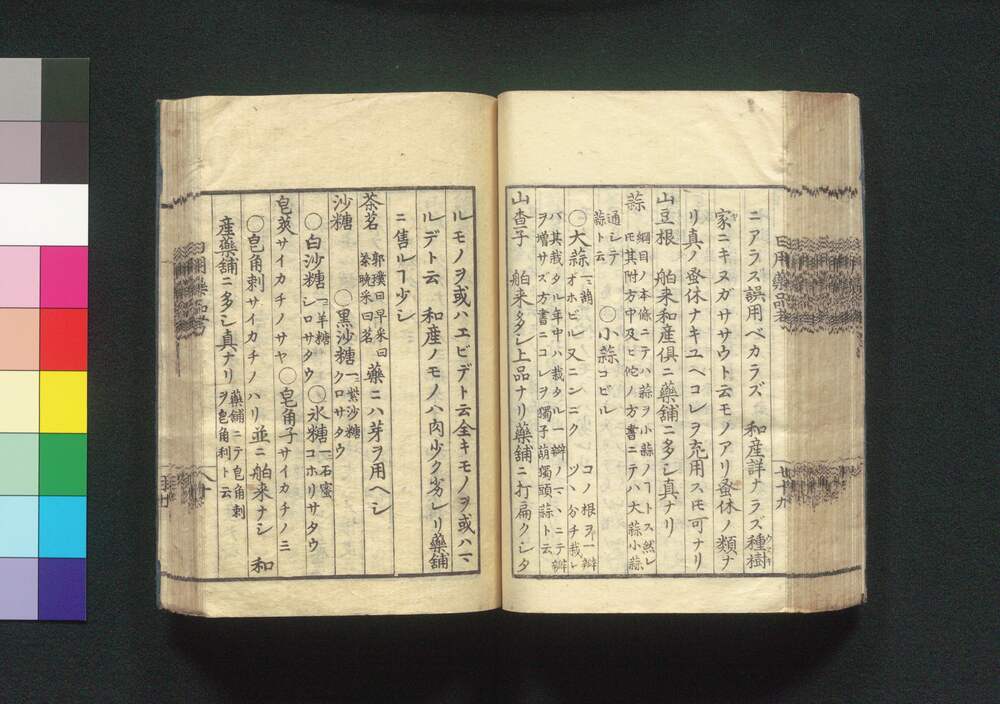 ニアラス誤用ベカラズ 和産詳ナラズ種樹
家ニキヌガササウト云モノアリ蚤休ノ類ナ
リ真ノ蚤休ナキユヘコレヲ充用スモ可ナリ
山豆根 舶来和産倶ニ藥舗ニ多シ真ナリ
蒜 綱目ノ本條ニテハ蒜ヲ小蒜ノヿトス然レ
モ其附方中及ヒ佗ノ方書ニテハ大蒜小蒜
通シテ
蒜ト云
〇小蒜コビル
〇大蒜一ニ葫オホビル又ニンニク コノ根ヲ一辨
ツヽ分チ栽レ
バ其栽タル年中ハ栽タル一辨ノマヽニテ辨
ヲ增サズ方書ニコレヲ獨子葫獨頭蒜ト云
山查子 舶来多シ上品ナリ藥舗ニ打扁クシタ
ルモノヲ或ハエビデト云全キモノヲ或ハマ
ルデト云 和産ノモノハ肉少ク劣レリ藥舗
ニ售ルヿ少シ
茶茗 郭璞曰早采曰
茶晚采曰茗
藥ニハ芽ヲ用ヘシ
沙糖 〇黒沙糖一ニ紫沙糖クロサタウ
〇白沙糖一ニ羊糖シロサタウ 〇氷糖一ニ石蜜コホリサタウ
皂莢サイカチノサヤ〇皂角子サイカチノミ
〇皂角刺サイカチノハリ並ニ舶来ナシ 和
産藥舗ニ多シ真ナリ 藥舗ニテ皂角刺
ヲ皂角利ト云